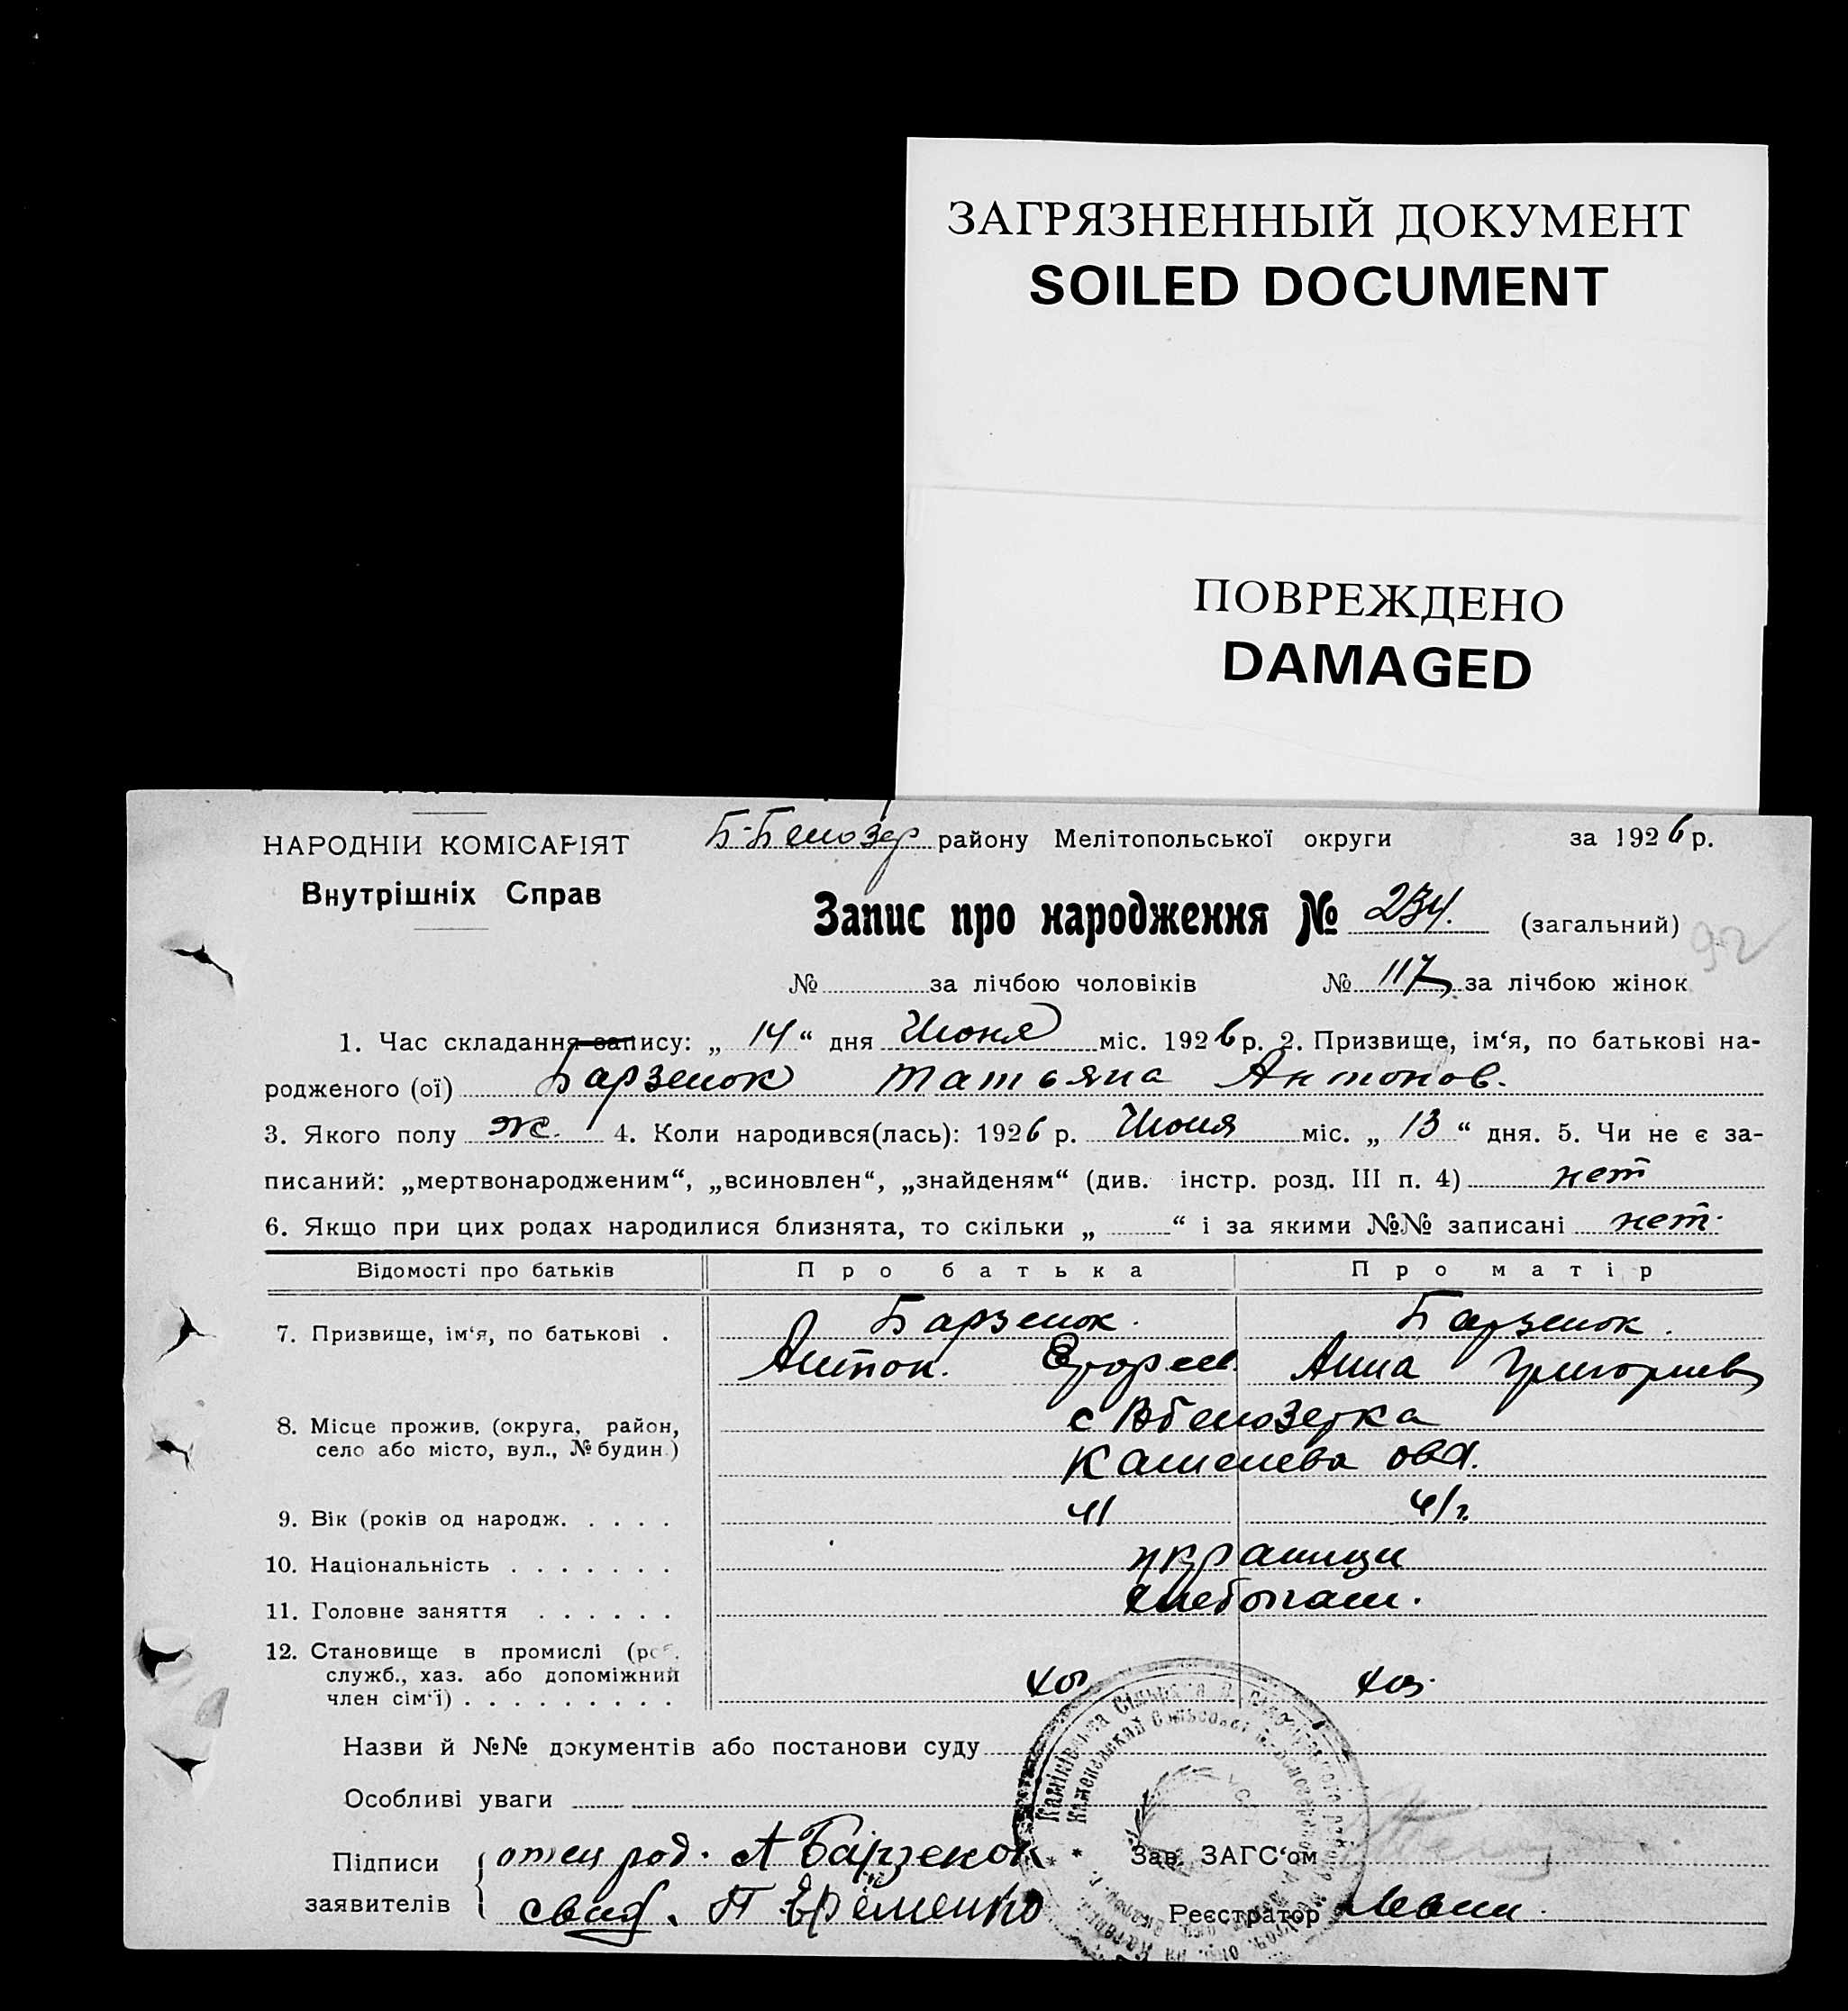 ЗАГРЯЗНЕННЫЙ ДОКУМЕНТ
SOILED DOCUMENT
ПОВРЕЖДЕНО
DAMAGED
НАРОДНІЙ КОМІСАРІЯТ
Внутрішніх Справ
Б-Белозер району Мелітопольської округи за 1926 р.
Запис про народження № 234. (загальний) 92
№ за лічбою чоловіків № 117 за лічбою жінок
1. Час складання запису: „ 14 “ дня Июня міс. 1926 р. 2. Призвище, ім‘я, по батькові на-
родженого (ої) Барзенок Татьяна Антонов.
3. Якого полу ж. 4. Коли народився(лась): 1926 р. Июня міс. „ 13 “ дня. 5. Чи не є за-
писаний: „мертвонародженим“, „всиновлен“, „знайденям“ (див. інстр. розд. III п. 4) нет
6. Якщо при цих родах народилися близнята, то скільки „ “ і за якими №№ записані нет.
Відомості про батьків Про батька Про матір
7. Призвище, ім‘я, по батькові . Барзенок. Барзенок.
Антон. Егорев. Анна Григориев
8. Місце прожив. (округа, район, с Вбелозерка
село або місто, вул., № будин.)
9. Вік (років од народж. . . . . 41 41 г.
10. Національність . . . . . . . украинци
11. Головне заняття . . . . . . хлебопаш.
12. Становище в промислі (роб.
служб., хаз. або допоміжний
член сім‘ї) . . . . . . . . . хоз. хоз.
Назви й №№ документів або постанови суду
Особливі уваги
Підписи отец род. А Барзенок Зав. ЗАГС‘ом
заявителів свид. П Ерёменко Реєстратор